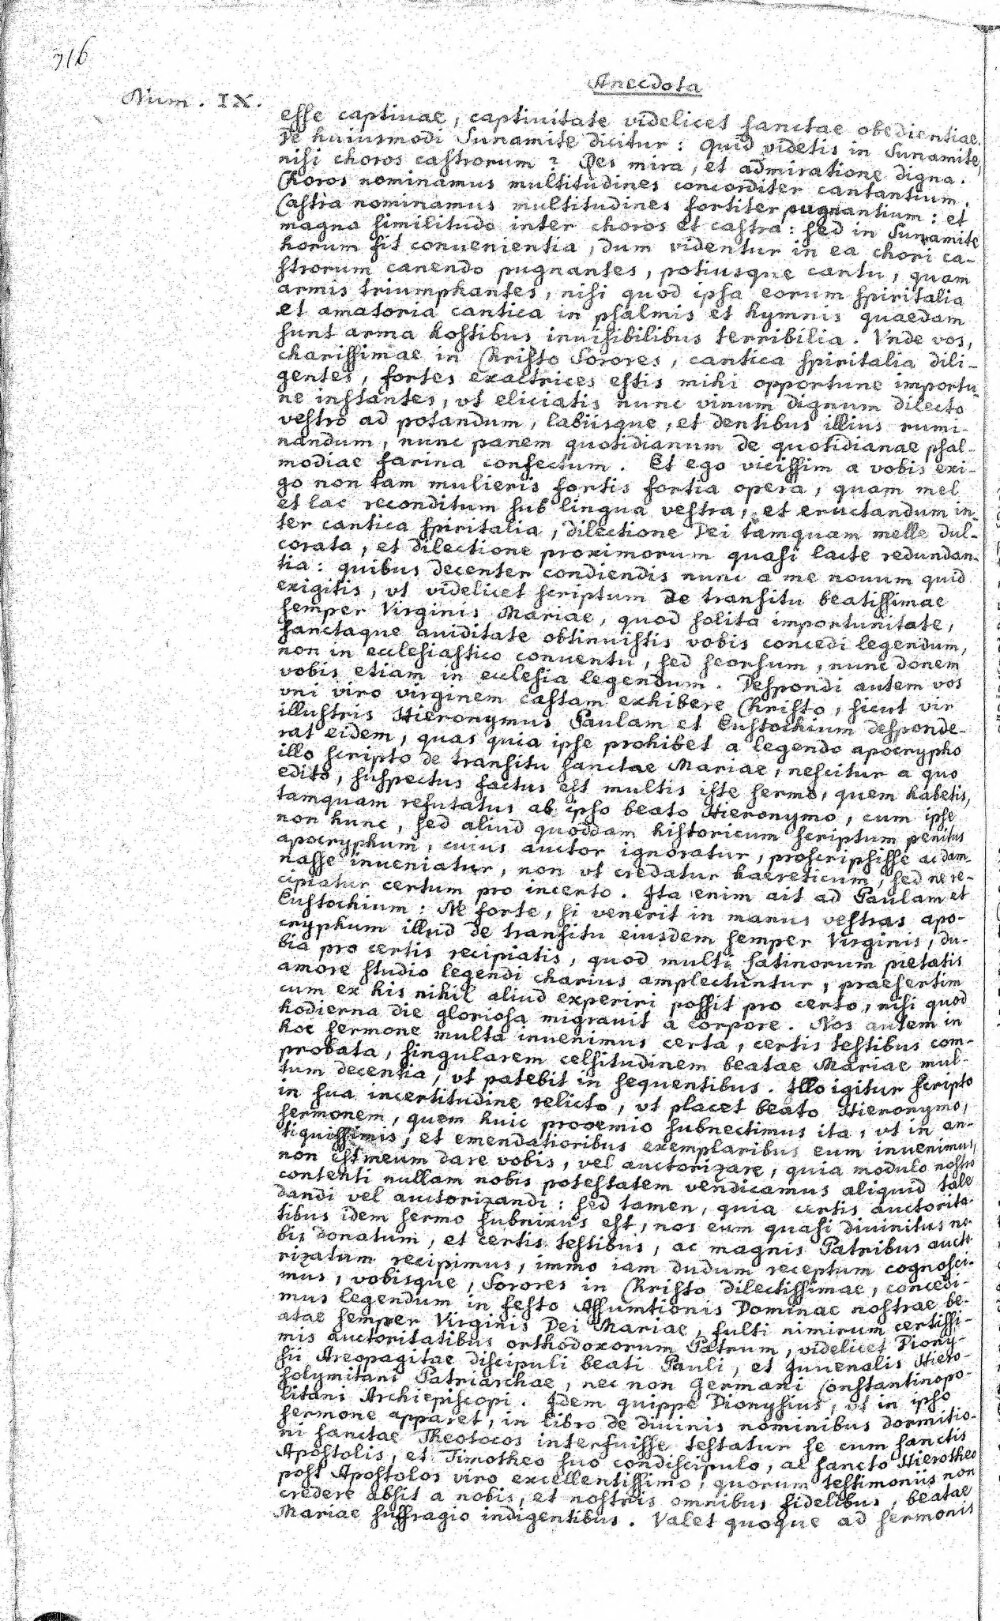 716
Anecdota
Num. IX.
esse captiuae, captiuitate videlicet sanctae obedientiae.
De huiusmodi Sunamite dicitur: quid videtis in Sunamite,
nisi choros castrorum? Res mira, et admiratione digna.
Choros nominamus multitudines concorditer cantantium.
Castra nominamus multitudines fortiter pugnantium: et
magna similitudo inter choros et castra: sed in Sunamite
horum fit conuenientia, dum videntur in ea chori ca-
strorum canendo pugnantes, potiusque cantu, quam
armis triumphantes, nisi quod ipsa eorum spiritalia
et amatoria cantica in psalmis et hymnis quaedam
sunt arma hostibus inuisibilibus terribilia. Vnde vos,
charissimae in Christo Sorores, cantica spiritalia dili-
gentes, fortes exactrices estis mihi opportune importu-
ne instantes, vt eliciatis nunc vinum dignum dilecto
vestro ad potandum, labiisque, et dentibus illius rumi-
nandum, nunc panem quotidianum de quotidianae psal-
modiae farina confectum. Et ego vicissim a vobis exi-
go non tam mulieris fortis fortia opera, quam mel
et lac reconditum sub lingua vestra, et eructandum in-
ter cantica spiritalia, dilectione Dei tamquam melle dul-
corata, et dilectione proximorum quasi lacte redundan-
tia: quibus decenter condiendis nunc a me nouum quid
exigitis, vt videlicet scriptum de transitu beatissimae
semper Virginis Mariae, quod solita importunitate,
sanctaque auiditate obtinuistis vobis concedi legendum,
non in ecclesiastico conuentu, sed seorsum, nunc donem
vobis etiam in ecclesia legendum. Despondi autem vos
vni viro virginem castam exhibere Christo, sicut vir
illustris Hieronymus Paulam et Eustochium desponde-
rat eidem, quas quia ipse prohibet a legendo apocrypho
illo scripto de transitu sanctae Mariae, nescitur a quo
edito, suspectus factus est multis iste sermo, quem habetis,
tamquam refutatus ab ipso beato Hieronymo, cum ipse
non hunc, sed aliud quoddam historicum scriptum penitus
apocryphum, cuius auctor ignoratur, proscripsisse ac dam-
nasse inueniatur, non vt credatur haereticum, sed ne re-
cipiatur certum pro incerto. Ita enim ait ad Paulam et
Eustochium: Ne forte, si venerit in manus vestras apo-
cryphum illud de transitu eiusdem semper Virginis, du-
bia pro certis recipiatis, quod multi latinorum pietatis
amore studio legendi charius amplectuntur, praesertim
cum ex his nihil aliud experiri possit pro certo, nisi quod
hodierna die gloriosa migrauit a corpore. Nos autem in
hoc sermone multa inuenimus certa, certis testibus com-
probata, singularem celsitudinem beatae Mariae mul-
tum decentia, vt patebit in sequentibus. Illo igitur scripto
in sua incertitudine relicto, vt placet beato Hieronymo,
sermonem, quem huic prooemio subnectimus ita, vt in an-
tiquissimis, et emendatioribus exemplaribus eum inuenimus,
non est meum dare vobis, vel auctorizare, quia modulo nostro
contenti nullam nobis potestatem vendicamus aliquid tale
dandi vel auctorizandi: sed tamen, quia certis auctorita-
tibus idem sermo subnixus est, nos eum quasi diuinitus no-
bis donatum, et certis testibus, ac magnis Patribus aucto-
rizatum recipimus, immo iam dudum receptum cognosci-
mus, vobisque, Sorores in Christo dilectissimae, concedi-
mus legendum in festo Assumtionis Dominae nostrae be-
atae semper Virginis Dei Mariae, fulti nimirum certissi-
mis auctoritatibus orthodoxorum Patrum, videlicet Diony-
sii Areopagitae discipuli beati Pauli, et Iuuenalis Hiero-
solymitani Patriarchae, nec non Germani Constantinopo-
litani Archiepiscopi. Idem quippe Dionysius, vt in ipso
sermone apparet, in libro de diuinis nominibus dormitio-
ni sanctae Theotocos interfuisse testatur se cum sanctis
Apostolis, et Timotheo suo condiscipulo, ac sancto Hierotheo
post Apostolos viro excellentissimo, quorum testimoniis non
credere absit a nobis, et nostris omnibus fidelibus, beatae
Mariae suffragio indigentibus. Valet quoque ad sermonis